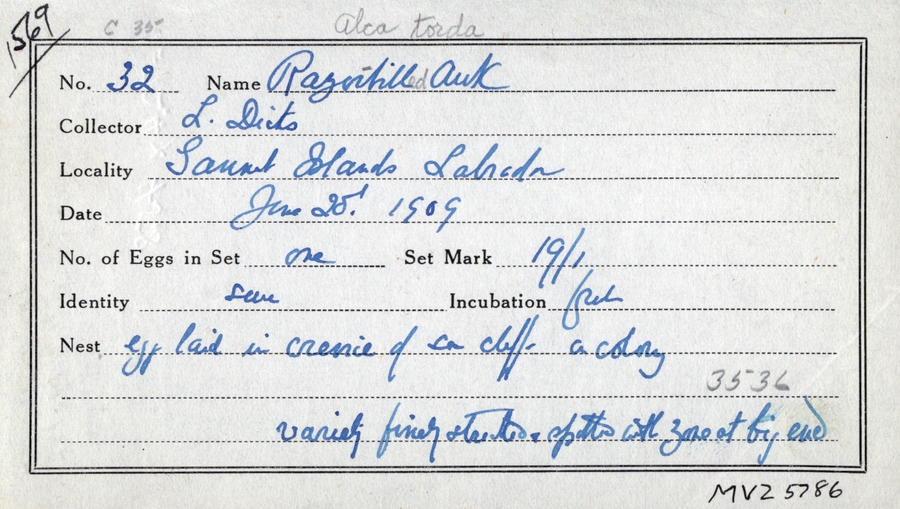 569
C 35
Alca torda
No. 32 Name Razorbilled Auk
Collector L. Dicks
Locality Gannet Islands Labrador
Date June 1909
No. of Eggs in Set one Set Mark 19/1
Identity sure Incubation fresh
Nest egg laid in crevice of sea cliff - a colony
3536
variety finely streaked & spotted with zone at big end
MVZ 5786